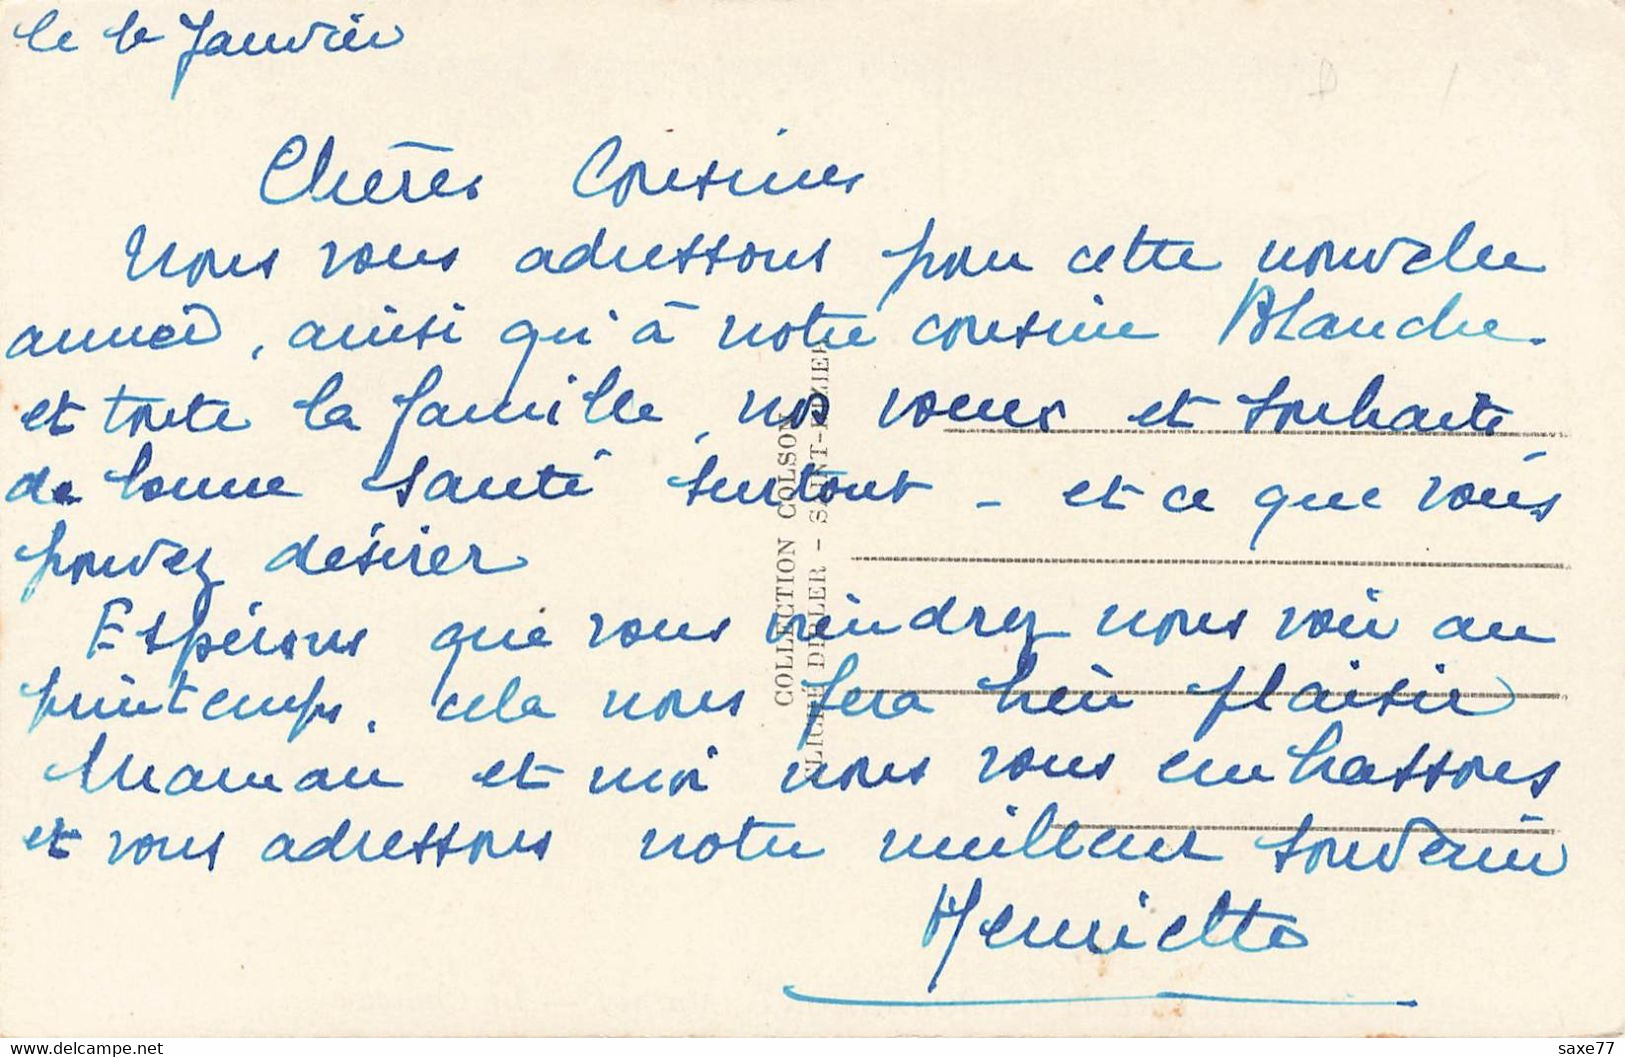 le 6 Janvier
Chères Cousines
Nous vous adressons pour cette nouvelle
année, ainsi qu'à notre cousine Blanche.
et toute la famille, nos voeux et souhaits
de bonne santé surtout - et ce que vous
pouvez désirer
Espérons que vous viendrez nous voir au
printemps, cela nous fera bien plaisir
Maman et moi nous vous embrassons
et vous adressons notre meilleur souvenir
Henriette
COLLECTION COLSON
CLICHÉ DIDLER - SAINT-DIZIER
delcampe.net
saxe77